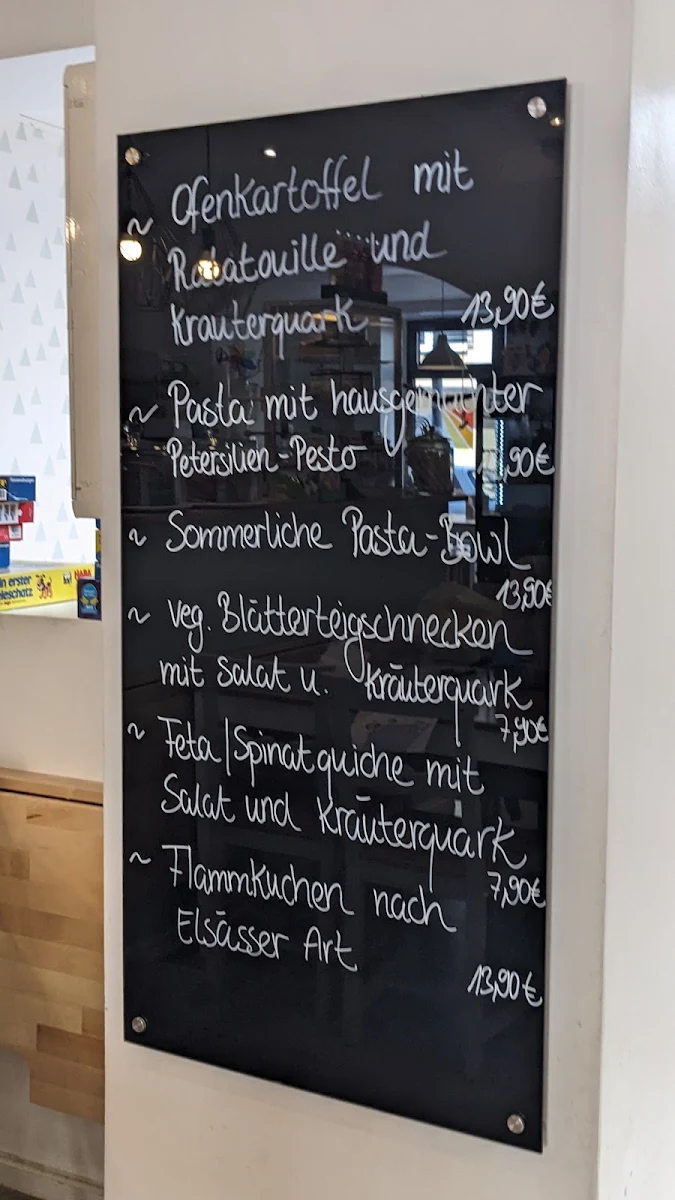 ~ Ofenkartoffel mit
Ratatouille und
Kräuterquark 13,90€
~ Pasta mit hausgemachter
Petersilien-Pesto ,90€
~ Sommerliche Pasta-Bowl
13,90€
~ veg. Blätterteigschnecken
mit Salat u. Kräuterquark
7,90€
~ Feta/Spinatquiche mit
Salat und Kräuterquark
7,90€
~ Flammkuchen nach
Elsässer Art
13,90€
HABA